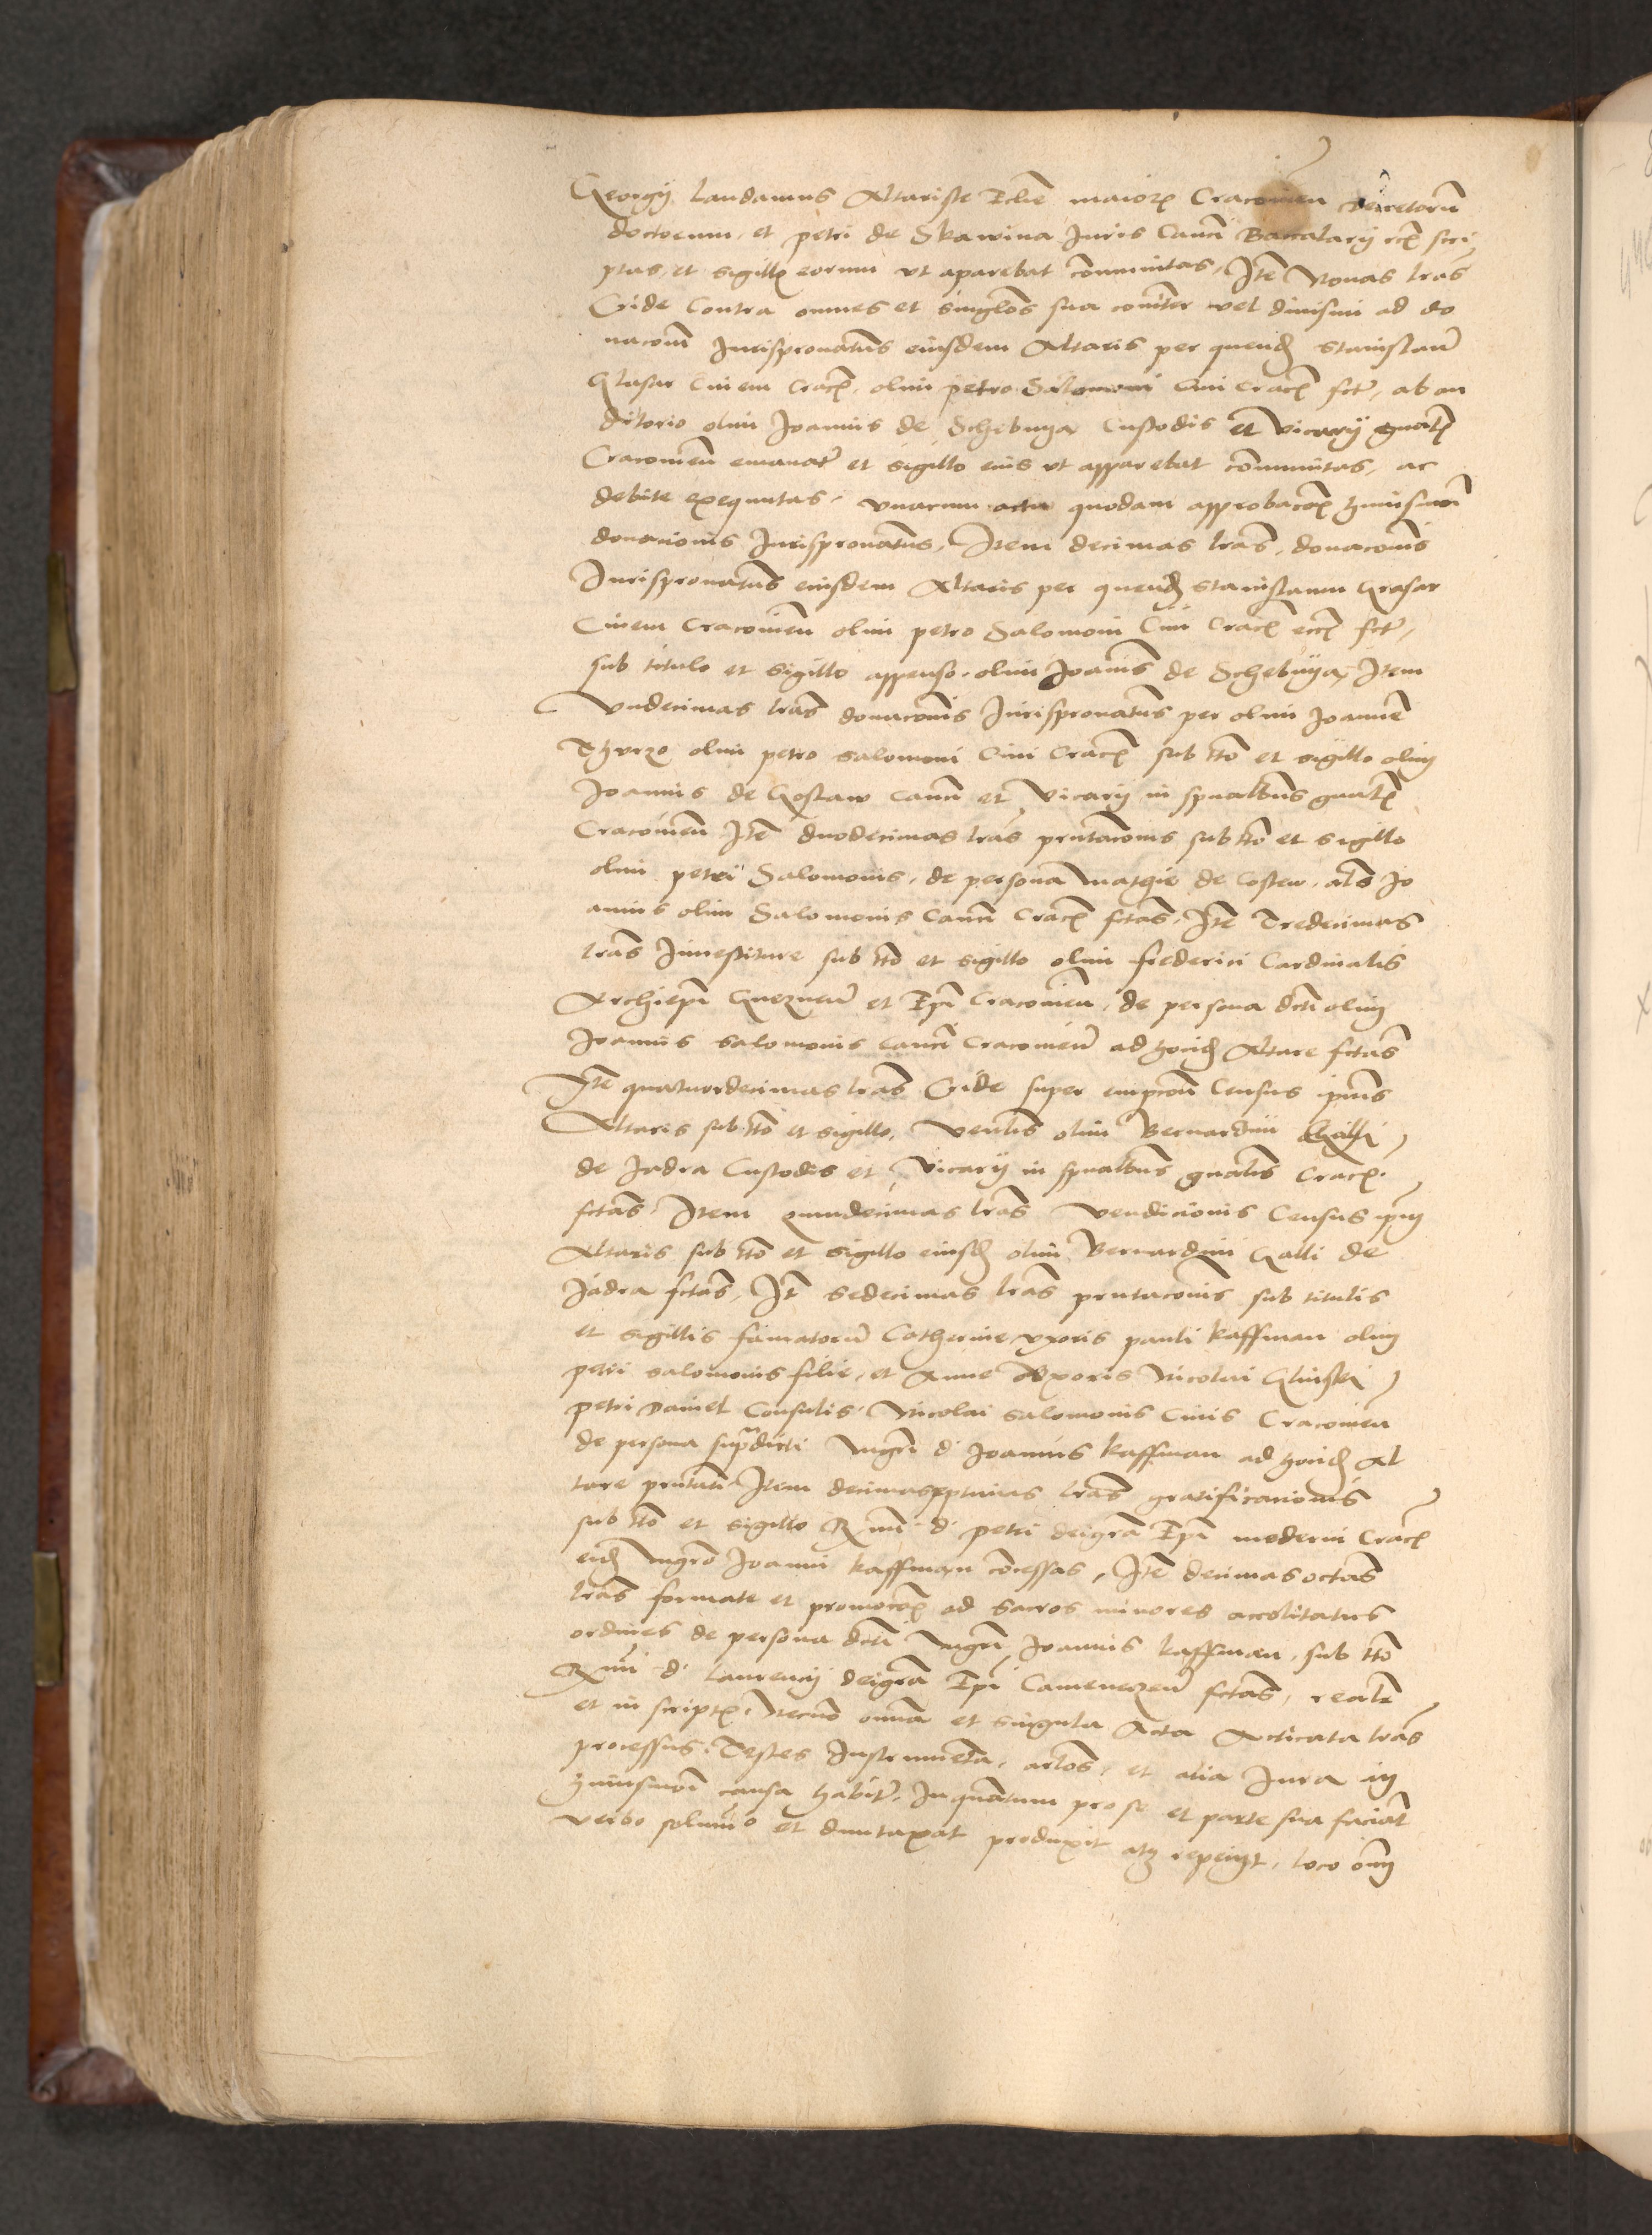 Georgij Landamus Altariste Eccllie maioris Cracovien decretorum
doctorum, et petri de Skawina Juris Canci Baccalarij rcs scri
ptas, et sigillis eorum ut aparebat communitas, Ite Nonas lras
Cride Contra omnes et singlos sua coniter vel divisim ad do
nacom Jurispronatus eiusdem Altaris per quend stanislau
Glasar Civem Crac olim petro Salomoni Civi Crac fct, ab au
ditorio olim Joannis de Schebnya Custodis et vicarij gnalis
Cracovien emanat et sigillo eius ut apparebat communitas, ac
debite exequutas, unacum actu quodam approbacois huiusmoi
donacionis Jurispronatus, Item decimas lras, donaconis
Jurispronatus eiusdem Altaris per quend stanislaum Grasar
Civem Cracovien olim petro Salomoni Civi Crac fct,
sub titulo et sigillo appenso olim Joanis de Schebnya, Item
Undecimas lras donaconis Jurispronatus per olim Joanne
Thurzo olim petro salomoni Civi Crac sub tto et sigillo olim
Joannis de Goslaw Canci et Vicarij in spualbus gnalis
Cracovien Ite duodecimas lras pntaconis sub tto et sigillo
olim petri Salomonis, de persona mathie de Costen, als Jo
annis olim Salomonis Canci Crac fctas, Ite Tredecimas
lras Investiture sub tto et sigillo olim frederici Cardinalis
Archiepi Gneznen et Epi Cracovien, de persona dcti olim
Joannis salomonis Canci Cracovien ad hocid Altare fctas
Ite quatuordecimas lras Cride super empcom Census ipius
Altaris sub tto et sigillo, Venlis olim Bernardini Galli
de Jadra Custodis et Vicarij in spualbus gnalis Crac
fctas, Item quindecimas lras Vendicionis Census ipius
Altaris sub tto et sigillo eiusd olim Bernardini Galli de
Jadra fctas, It sedecimas lras pntaconis sub titulis
et sigillis famatorum Catherine uxoris pauli kaffman olim
petri salomonis filie, et Anne uxoris Nicolai Glinski
petri Daniel Consulis, Nicolai salomonis Civis Cracovien
de persona supradicti Mgri d Joannis kaffman ad hocid Al
tare pntati Item decimasseptimas lras gratificacionis
sub tto et sigillo Rmi d petri deigra Epi moderni Crac
eid mgro Joanni kaffman concessas, Ite decimas octas
lras formate et promocois ad sacros minores accolitatus
ordines de persona dcti Mgri Joannis kaffman, sub tto
Rmi d Laurencij deigra Epi Camenezen fctas, realr
et in scriptis, Necno omia et singula Acta Acticata lras
processus, Testes Instrumenta, actos, et alia Jura in
huiusmoi causa habit, Inquantum pro se et parte sua faciat
verbo solumo et duntaxat produxit atq repeciit, loco oim